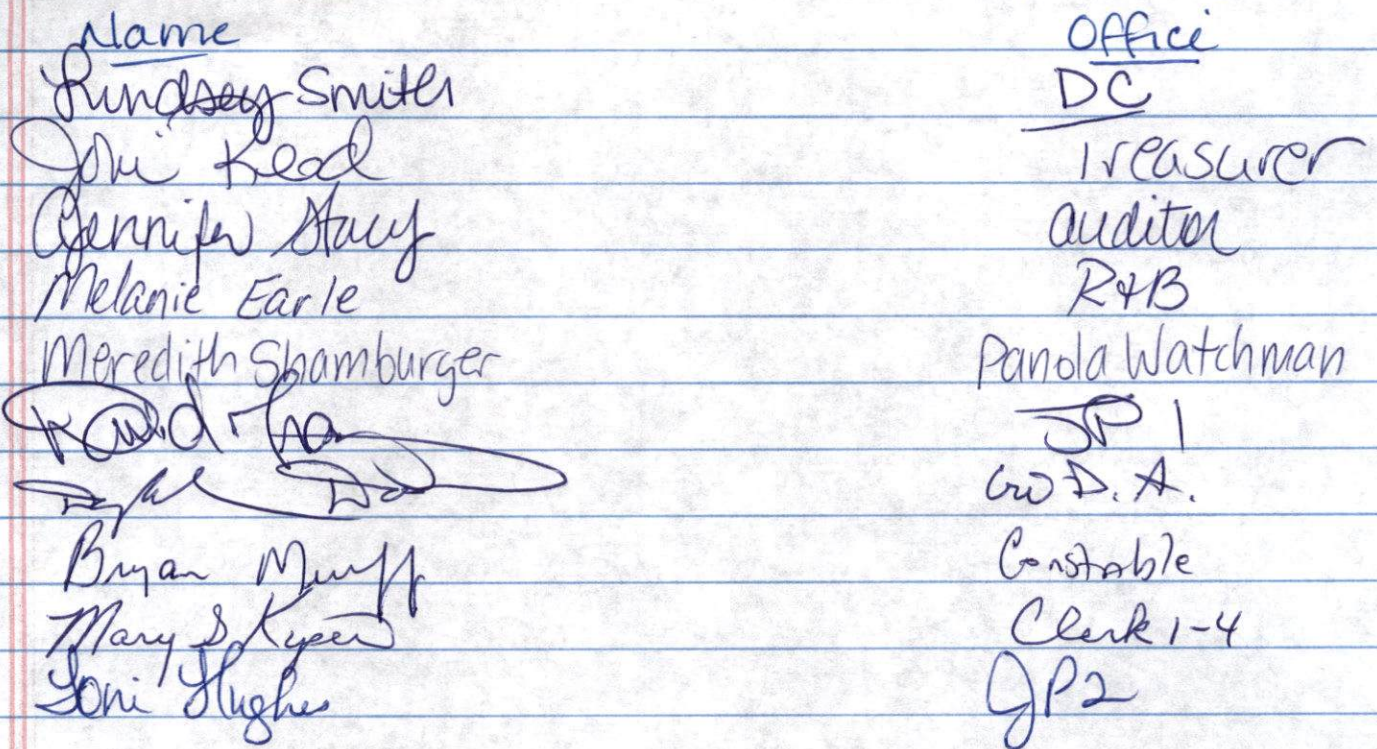 Name Office
Lindsey Smith DC
Joni Reed Treasurer
Jennifer Stacy auditor
Melanie Earle R+B
Meredith Shamburger Panola Watchman
David JP 1
D.A.
Bryan Murff Constable
Mary S. Clerk 1-4
Toni Hughes JP2